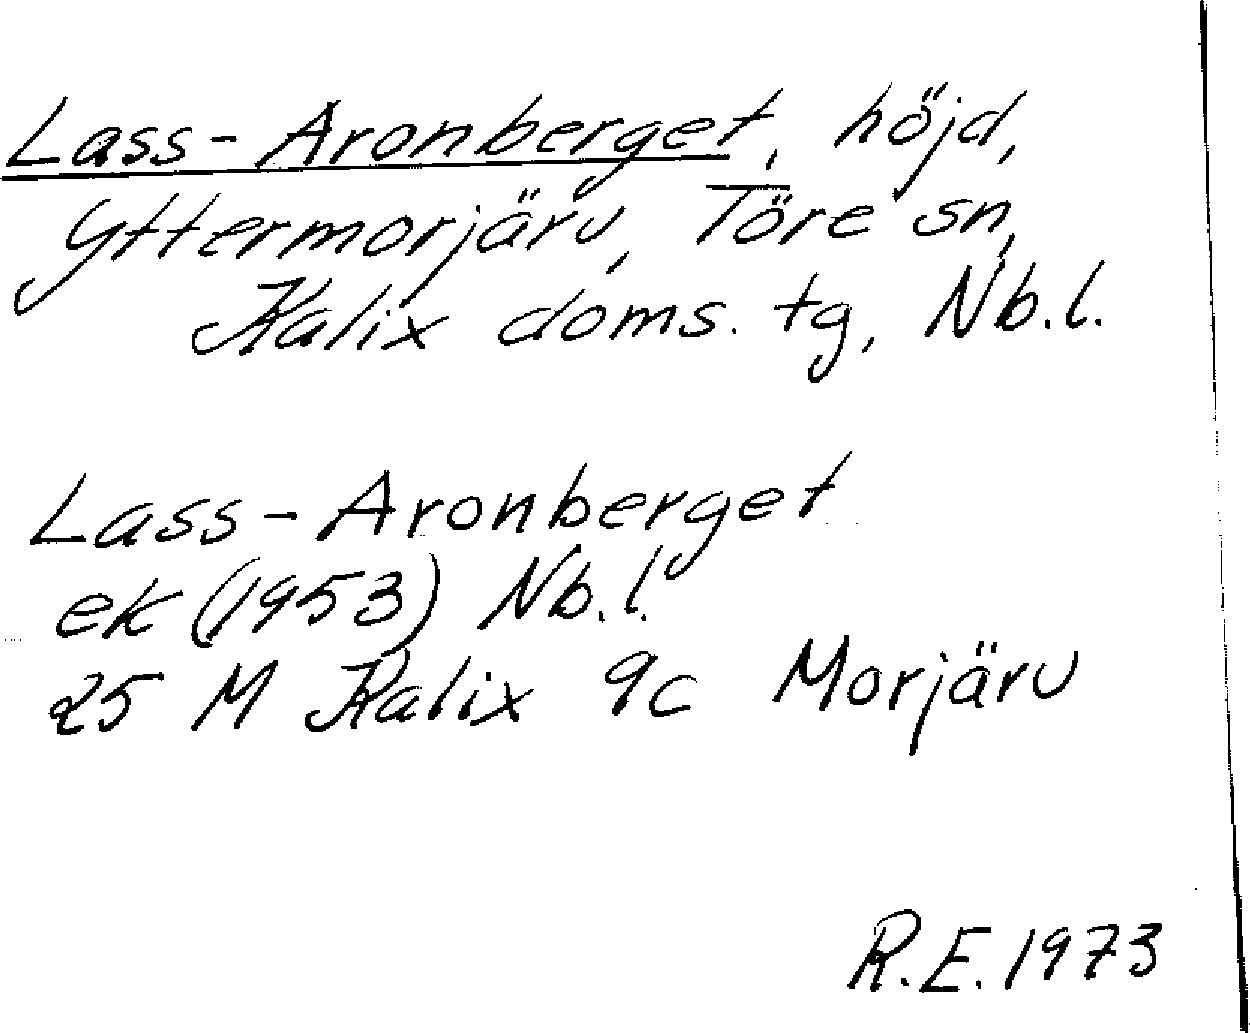 Lass-Aronberget, höjd,
Yttermorjärv, Töre sn,
Kalix doms. tg, Nb.l.
Lass-Aronberget
ek (1953) Nb.l.
25 M Kalix 9c Morjärv
R.E. 1973